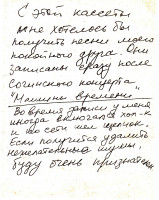 С этой кассеты
мне хотелось бы
получить песни моего
покойного друга. Они
записаны сразу после
Сочинского концерта
"Машины времени"
Во время записи у меня
иногда включался хол-к
и по сети шел щелчок.
Если получится удалить
нежелательные шумы,
буду очень признателен